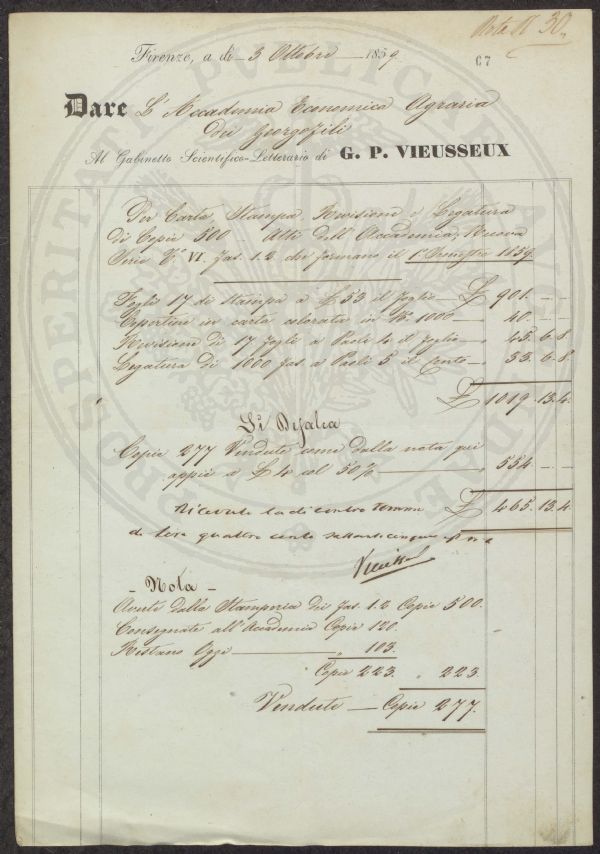 Nota N 30.
Firenze, a dì 3 Ottobre 1859.
67
Dare L'Accademia Economica Agraria
dei Georgofili
Al Gabinetto Scientifico-Letterario di G. P. VIEUSSEUX
Per Carta, Stampa, Revisione e Legatura
di Copie 500 - Atti dell'Accademia, Nuova
Serie VI. fas. 1.2 che formano il 1° Semestre 1859.
Fogli 17 di Stampa a £ 53 il foglio £ 901. - -
Copertine in carta colorata in N. 1000 " 40. - -
Revisione di 17 fogli a Paoli 4 il foglio " 45. 6. 8
Legatura di 1000 fas. a Paoli 5 il Cento " 33. 6. 8
£ 1019. 13. 4
Si Difalca
Copie 277 Vendute come dalla nota qui
appiè a £ 4 col 50% " 554 - -
Ricevuto la di contro somma £ 465. 13. 4
di lire quattro cento sessantacinque
Vieusseux
- Nota -
Avute dalla Stamperia di fas. 1.2 Copie 500.
Consegnate all'Accademia Copie 120
Restano Oggi " 103.
Copie 223. " 223
Vendute - Copie 277.
PROSPERITATI PVBLICAE AVGENDAE